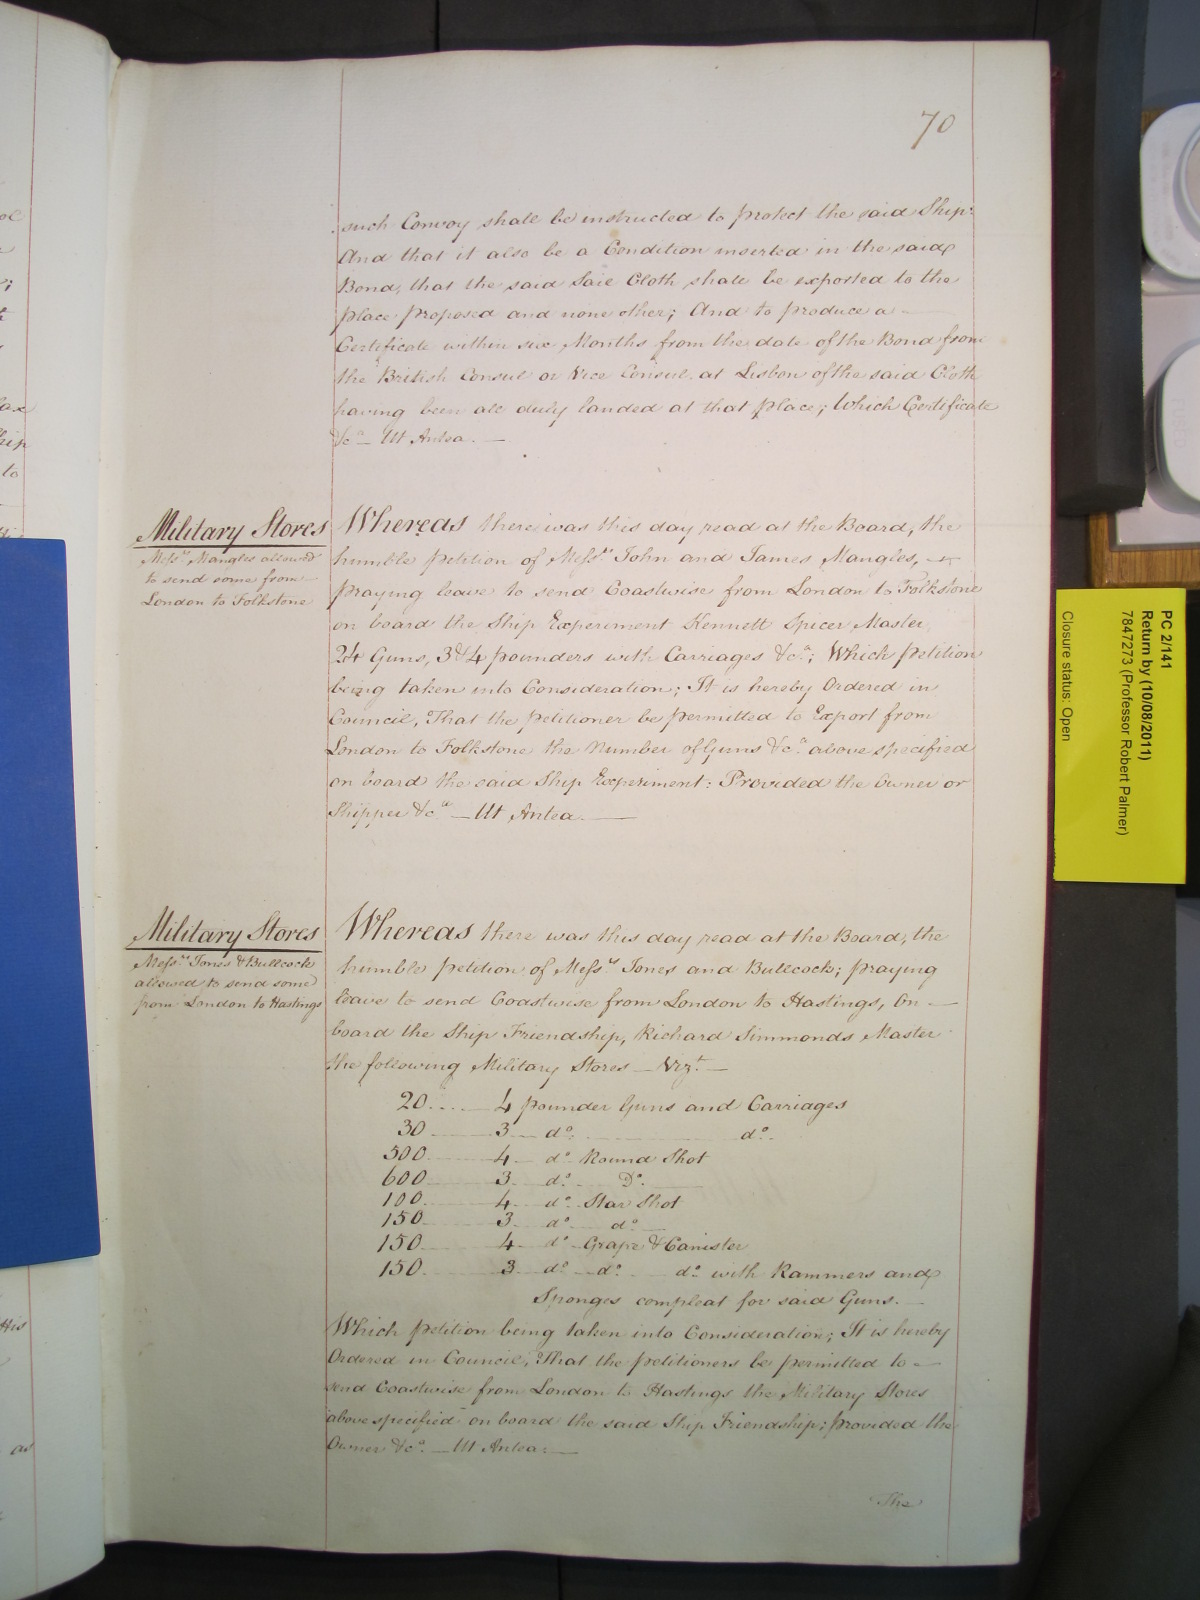 70
such Convoy shall be instructed to protect the said Ship:
And that it also be a Condition inserted in the said
Bond, that the said Sail Cloth shall be exported to the
place proposed and none other; And to produce a
Certificate within six Months from the date of the Bond from
the British Consul or Vice Consul, at Lisbon of the said Cloth
having been all duly landed at that place; Which Certificate
&ca Ut Antea.
Military Stores
Messrs Mangles allowed
to send some from
London to Folkstone
Whereas there was this day read at the Board, the
humble petition of Messrs John and James Mangles,
praying leave to send Coastwise from London to Folkstone
on board the Ship Experiment Kennett Spicer Master,
24 Guns, 3 & 4 pounders with Carriages &ca; Which petition
being taken into Consideration; It is hereby Ordered in
Council, That the petitioner be permitted to Export from
London to Folkstone the Number of Guns &ca above specified
on board the said Ship Experiment: Provided the Owner or
Shipper &ca — Ut Antea. —
Military Stores
Messrs Jones & Bullcock
allowed to send some
from London to Hastings
Whereas there was this day read at the Board, the
humble petition of Messrs Jones and Bullcock; praying
leave to send Coastwise from London to Hastings, On —
board the Ship Friendship, Richard Simmonds Master
the following Military Stores — Vizt. —
20 .... 4 pounder Guns and Carriages
30 3 do. do.
500 4 do. Round Shot
600 3 do. Do.
100 4 do. Star Shot
150 3 do do
150 4 do Grape & Canister
150 3 do. do. do. with Rammers and
Sponges compleat for said Guns. —
Which petition being taken into Consideration; It is hereby
Ordered in Council, That the petitioners be permitted to —
send Coastwise from London to Hastings the Military Stores
above specified on board the said Ship Friendship; provided the
Owner &ca. — Ut Antea: —
The
PC 2/141
Return by (10/08/2011)
7847273 (Professor Robert Palmer)
Closure status: Open